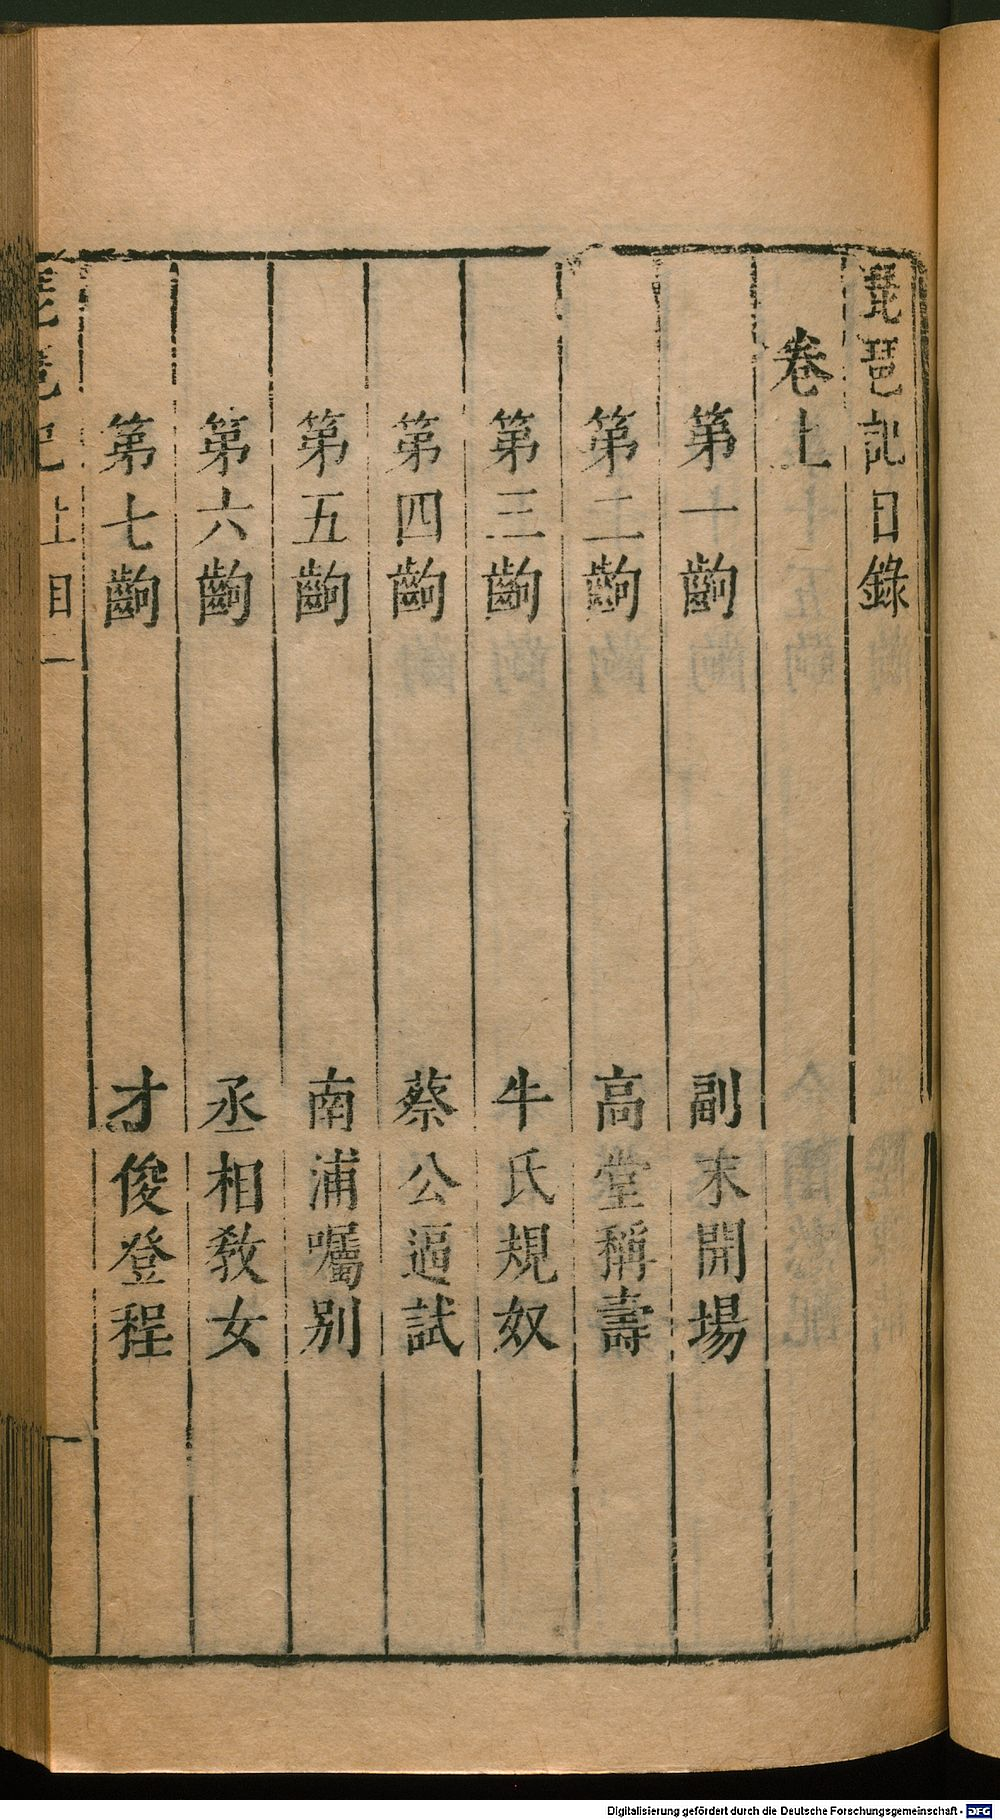 琵琶記目錄
卷上
第一齣 副末開場
第二齣 高堂稱壽
第三齣 牛氏規奴
第四齣 蔡公逼試
第五齣 南浦囑别
第六齣 丞相敎女
第七齣 才俊登程
琵琶記 上目 一
Digitalisierung gefördert durch die Deutsche Forschungsgemeinschaft - DFG